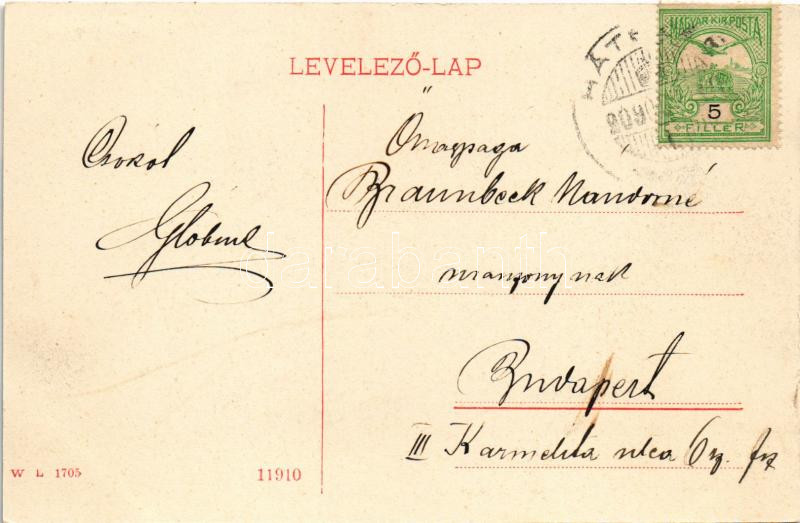 LEVELEZŐ-LAP
MAGYAR KIR. POSTA
5
FILLÉR
MÁT
Csókol
Őnagysága
Braunbeck Nándorné
úrasszonynak
Budapest
III Karmelita utca 6
W L 1705
11910
darabanth